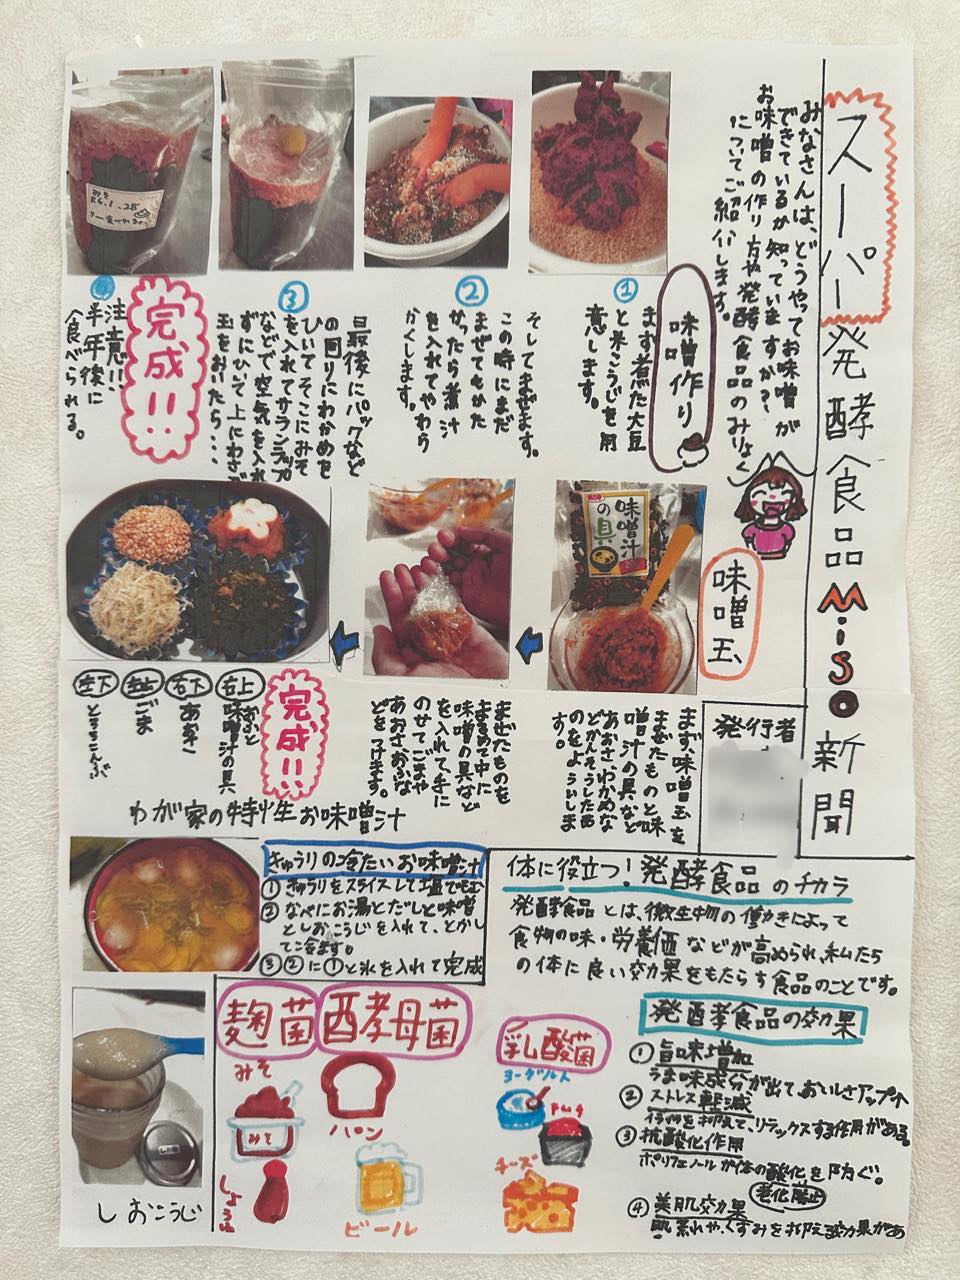 スーパー発酵食品Miso新聞
みなさんは、どうやってお味噌が
できているか知っていますか?
お味噌の作り方や発酵食品のみりょく
についてご紹介します。
味噌作り
①
まず煮た大豆
と米こうじを用
意します。
②
そしてまぜます。
この時にまだ
まぜてもかた
かったら煮汁
を入れてやわら
かくします。
③
最後にパックなど
の回りにわかめを
ひいてそこにみそ
を入れてサランラップ
などで空気を入れ
ずにひいて上にわさび
玉をおいたら・・・
完成!!
注意!!
半年後に
食べられる。
みそ
R6.1.28
味噌玉
味噌汁
の具
まず、味噌玉を
まぜたものと味
噌汁の具など
あおさ、わかめな
どかんそうしたも
のをようい します。
まぜたものを
まるめて中に
味噌の具など
を入れて手に
のせてごまや
あおさ、おふな
どをつけます。
完成!!
右上
おふと
味噌汁の具
右下
あおさ
左上
ごま
左下
とろろこんぶ
発行者
わが家の特性お味噌汁
きゅうりの冷たいお味噌汁
①きゅうりをスライスして塩でもむ
②なべにお湯とだしと味噌
としおこうじを入れて、とかし
て冷ます。
③②に①と氷を入れて完成
しおこうじ
体に役立つ!発酵食品のチカラ
発酵食品とは、微生物の働きによって
食物の味・労養価などが高められ、私たち
の体に良い効果をもたらす食品のことです。
麹菌
みそ
みそ
しょうゆ
酵母菌
パン
ビール
乳酸菌
ヨーグルト
チーズ
発酵食品の効果
①旨味増加
うま味成分が出て、おいしさアップ↑
②ストレス軽減
を抑えて、リラックスする作用がある。
③抗酸化作用
ポリフェノールが体の酸化を防ぐ。
老化防止
④美肌効果
肌荒れや、くすみを抑える効果があ